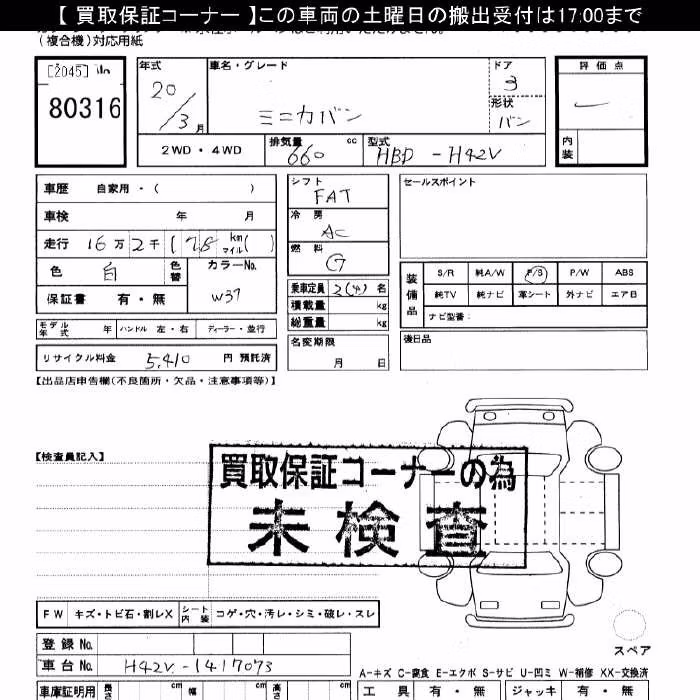 【 買取保証コーナー 】この車両の土曜日の搬出受付は17:00まで
(複合機)対応用紙
[2045]
80316
年式 車名・グレード ドア 評価点
20/3月 ミニカバン 3
形状 バン
2WD・4WD 排気量 660 cc 型式 HBD-H42V 内装
車歴 自家用・( )
車検 年 月
走行 16万2千(78 km マイル( )
色 白 色替 カラーNo. W37
保証書 有・無
モデル年式 年 ハンドル 左・右 ディーラー・並行
リサイクル料金 5,410 円 預託済
シフト FAT
冷房 AC
燃料 G
乗車定員 2(4) 名
積載量 kg
総重量 kg
名変期限 月 日
セールスポイント
装備品 S/R 純A/W P/S P/W ABS
純TV 純ナビ 革シート 外ナビ エアB
ナビ型番:
後日品
【出品店申告欄(不良箇所・欠品・注意事項等)】
【検査員記入】
買取保証コーナーの為
未検査
FW キズ・トビ石・割レX シート内装 コゲ・穴・汚レ・シミ・破レ・スレ
スペア
登録No.
車台No. H42V-1417073
A-キズ C-腐食 E-エクボ S-サビ U-凹ミ W-補修 XX-交換済
車庫証明用 長さ cm 幅 cm 高さ cm 工具 有・無 ジャッキ 有・無